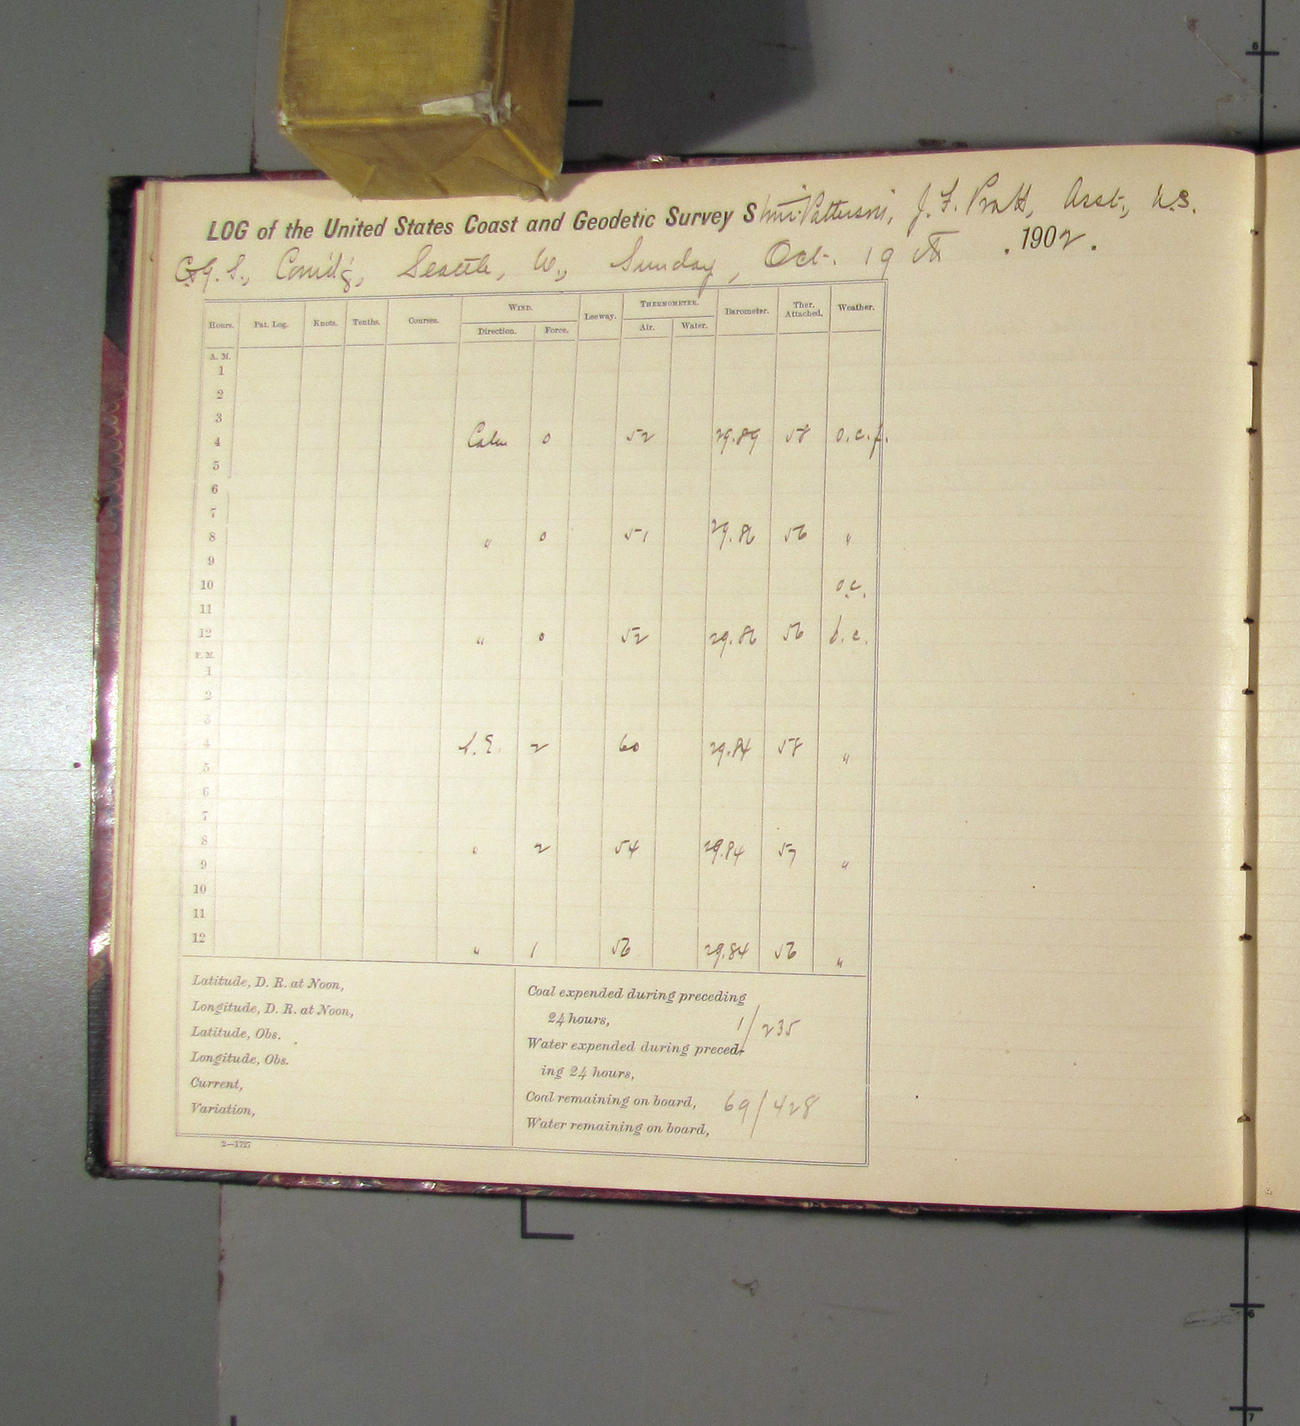 LOG of the United States Coast and Geodetic Survey S Patterson, J. F. Pratt, Asst., U.S.
C & G. S., Com'd'g, Seattle, W., Sunday, Oct. 19th . 1902.
Hours. Pat. Log. Knots. Tenths. Courses. WIND. Leeway. THERMOMETER. Barometer. Ther. Attached. Weather.
Direction. Force. Air. Water.
A. M.
1
2
3
4 Calm 0 52 29.89 58 o.c.f.
5
6
7
8 " 0 51 29.86 56 "
9
10 o.c.
11
12 " 0 52 29.86 56 b.c.
P. M.
1
2
3
4 S.E. 2 60 29.84 58 "
5
6
7
8 " 2 54 29.84 57 "
9
10
11
12 " 1 56 29.84 56 "
Latitude, D. R. at Noon,
Longitude, D. R. at Noon,
Latitude, Obs.
Longitude, Obs.
Current,
Variation,
Coal expended during preceding
24 hours, 1/235
Water expended during preced-
ing 24 hours,
Coal remaining on board, 69/428
Water remaining on board,
2—1727
6
6
7